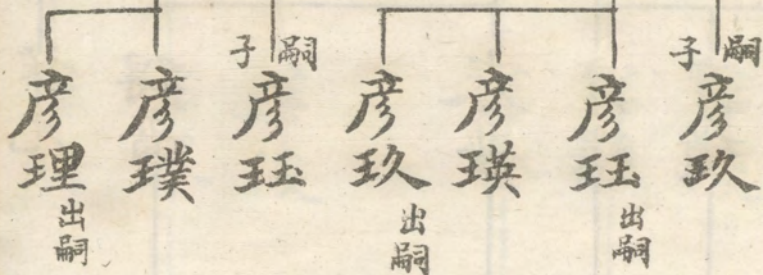 嗣子
彦玖
彦珏
出嗣
彦瑛
彦玖
出嗣
嗣子
彦珏
彦璞
彦理
出嗣